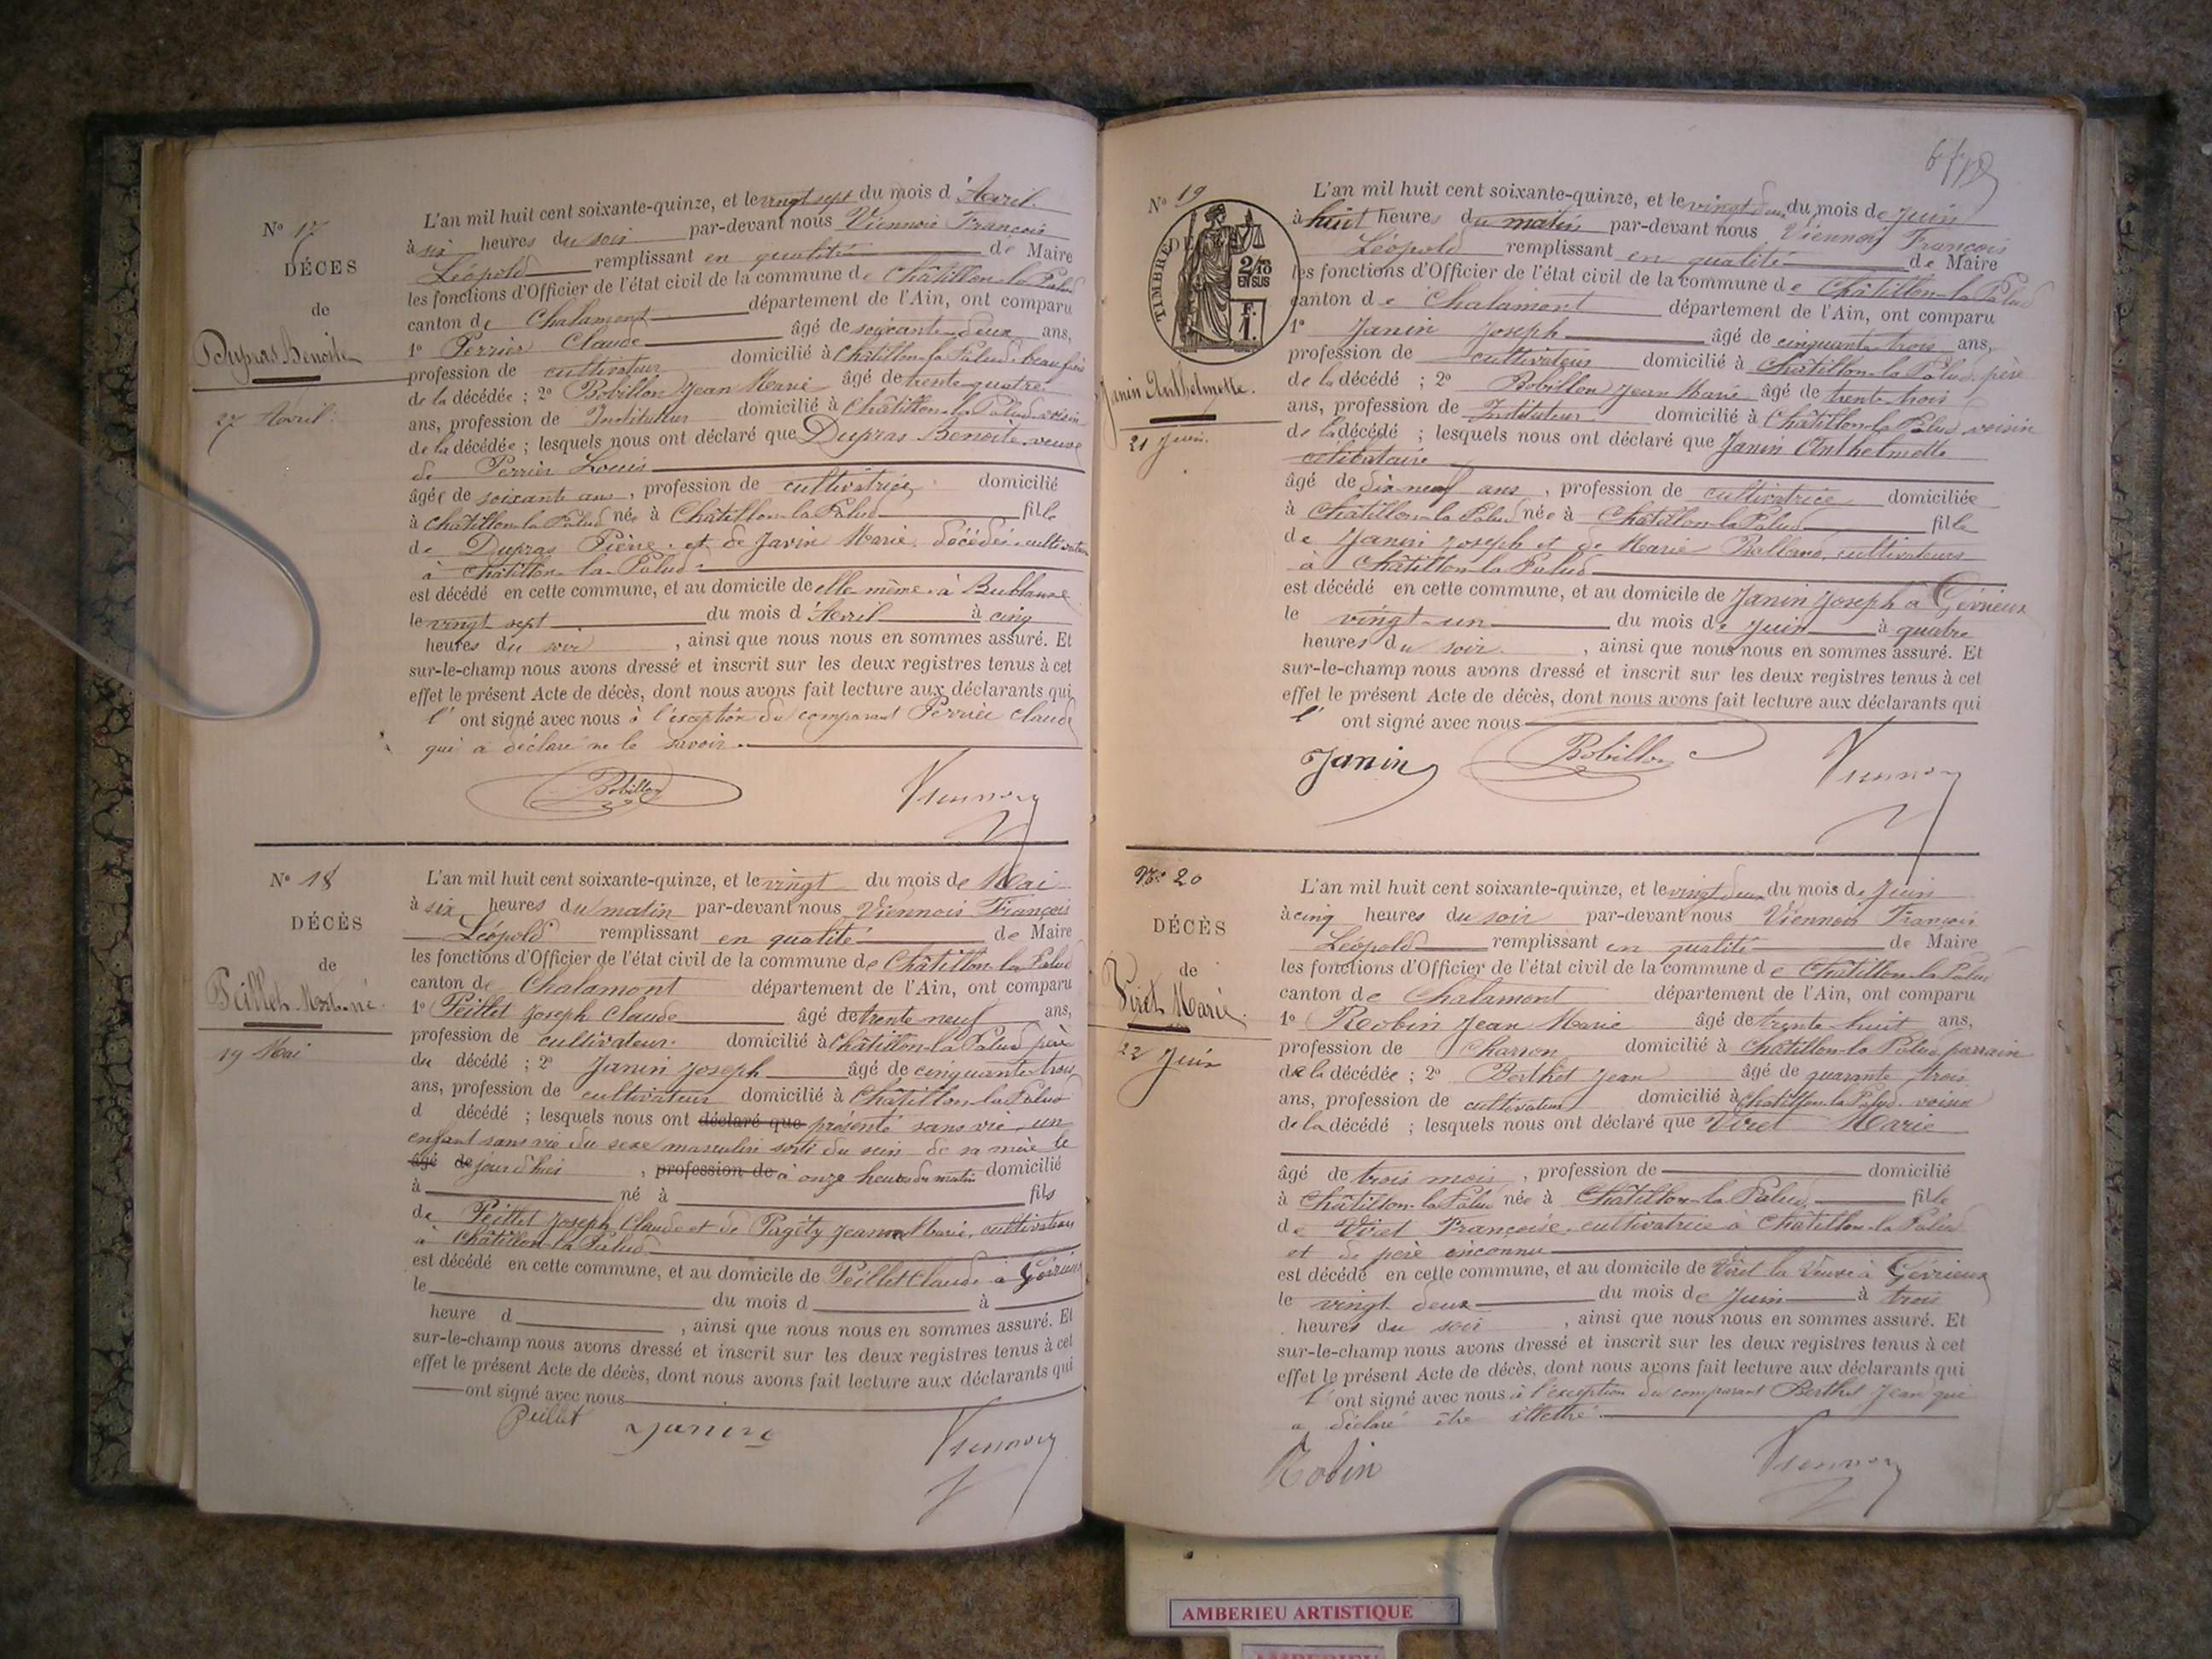 N° 17
DÉCES
de
Dupras Benoite
27 Avril.
L'an mil huit cent soixante-quinze, et le vingt sept du mois d'Avril
à six heures du soir par-devant nous Viennois François
Léopold remplissant en qualité de Maire
les fonctions d'Officier de l'état civil de la commune de Châtillon-la-Palud
canton de Chalamont département de l'Ain, ont comparu
1° Perrier Claude âgé de soixante deux ans,
profession de cultivateur domicilié à Châtillon-la-Palud beau frère
de la décédée ; 2° Bobillon Jean Marie âgé de trente quatre
ans, profession de Instituteur domicilié à Châtillon-la-Palud voisin
de la décédée ; lesquels nous ont déclaré que Dupras Benoite veuve
de Perrier Louis
âgée de soixante ans, profession de cultivatrice domicilié
à Châtillon-la-Palud née à Châtillon-la-Palud fille
de Dupras Pierre et de Janin Marie, décédés cultivateurs
à Châtillon-la-Palud
est décédé en cette commune, et au domicile de elle même à Bublanne
le vingt sept du mois d'Avril à cinq
heures du soir, ainsi que nous nous en sommes assuré. Et
sur-le-champ nous avons dressé et inscrit sur les deux registres tenus à cet
effet le présent Acte de décès, dont nous avons fait lecture aux déclarants qui
l'ont signé avec nous à l'exception du comparant Perrier Claude
qui a déclaré ne le savoir.
Bobillon Viennois
N° 18
DÉCÈS
de
Peillet Mort-né.
19 Mai
L'an mil huit cent soixante-quinze, et le vingt du mois de Mai
à six heures du matin par-devant nous Viennois François
Léopold remplissant en qualité de Maire
les fonctions d'Officier de l'état civil de la commune de Châtillon-la-Palud
canton de Chalamont département de l'Ain, ont comparu
1° Peillet Joseph Claude âgé de trente neuf ans,
profession de cultivateur domicilié à Châtillon-la-Palud père
du décédé ; 2° Janin Joseph âgé de cinquante trois
ans, profession de cultivateur domicilié à Châtillon-la-Palud
d décédé ; lesquels nous ont déclaré que présenté sans vie un
enfant sans vie du sexe masculin sorti du sein de sa mère le
âgé de jour d'hier, profession de à onze heures du matin domicilié
à né à fils
de Peillet Joseph Claude et de Pagety Jeanne Marie, cultivateurs
à Châtillon-la-Palud
est décédé en cette commune, et au domicile de Peillet Claude à Gévrieux
le du mois d à
heure d , ainsi que nous nous en sommes assuré. Et
sur-le-champ nous avons dressé et inscrit sur les deux registres tenus à cet
effet le présent Acte de décès, dont nous avons fait lecture aux déclarants qui
ont signé avec nous
Peillet Janin Viennois
N° 19
TIMBRE DE
2/10 EN SUS
1 f.
Janin Anthelmette.
21 Juin.
L'an mil huit cent soixante-quinze, et le vingt deux du mois de Juin
à huit heures du matin par-devant nous Viennois François
Léopold remplissant en qualité de Maire
les fonctions d'Officier de l'état civil de la commune de Châtillon-la-Palud
canton de Chalamont département de l'Ain, ont comparu
1° Janin Joseph âgé de cinquante trois ans,
profession de cultivateur domicilié à Châtillon-la-Palud père
de la décédé ; 2° Bobillon Jean Marie âgé de trente trois
ans, profession de Instituteur domicilié à Châtillon-la-Palud voisin
de la décédé ; lesquels nous ont déclaré que Janin Anthelmette
célibataire
âgé de dix-neuf ans, profession de cultivatrice domiciliée
à Châtillon-la-Palud née à Châtillon-la-Palud fille
de Janin Joseph et de Marie Balland, cultivateurs
à Châtillon-la-Palud
est décédé en cette commune, et au domicile de Janin Joseph à Gévrieux
le vingt-un du mois de Juin à quatre
heures du soir, ainsi que nous nous en sommes assuré. Et
sur-le-champ nous avons dressé et inscrit sur les deux registres tenus à cet
effet le présent Acte de décès, dont nous avons fait lecture aux déclarants qui
l'ont signé avec nous
Janin Bobillon Viennois
N° 20
DÉCÈS
de
Viret Marie.
22 Juin
L'an mil huit cent soixante-quinze, et le vingt deux du mois de Juin
à cinq heures du soir par-devant nous Viennois François
Léopold remplissant en qualité de Maire
les fonctions d'Officier de l'état civil de la commune de Châtillon-la-Palud
canton de Chalamont département de l'Ain, ont comparu
1° Robin Jean Marie âgé de trente-huit ans,
profession de Charron domicilié à Châtillon-la-Palud parrain
de la décédée ; 2° Berthet Jean âgé de quarante trois
ans, profession de cultivateur domicilié à Châtillon-la-Palud voisin
de la décédé ; lesquels nous ont déclaré que Viret Marie
âgé de trois mois, profession de domicilié
à Châtillon-la-Palud née à Châtillon-la-Palud, fille
de Viret Françoise, cultivatrice à Châtillon-la-Palud
et de père inconnu
est décédé en cette commune, et au domicile de Viret la Veuve à Gévrieux
le vingt deux du mois de Juin à trois
heures du soir, ainsi que nous nous en sommes assuré. Et
sur-le-champ nous avons dressé et inscrit sur les deux registres tenus à cet
effet le présent Acte de décès, dont nous avons fait lecture aux déclarants qui
l'ont signé avec nous à l'exception du comparant Berthet Jean qui
a déclaré être illettré.
Robin Viennois
AMBERIEU ARTISTIQUE
AMBERIEU